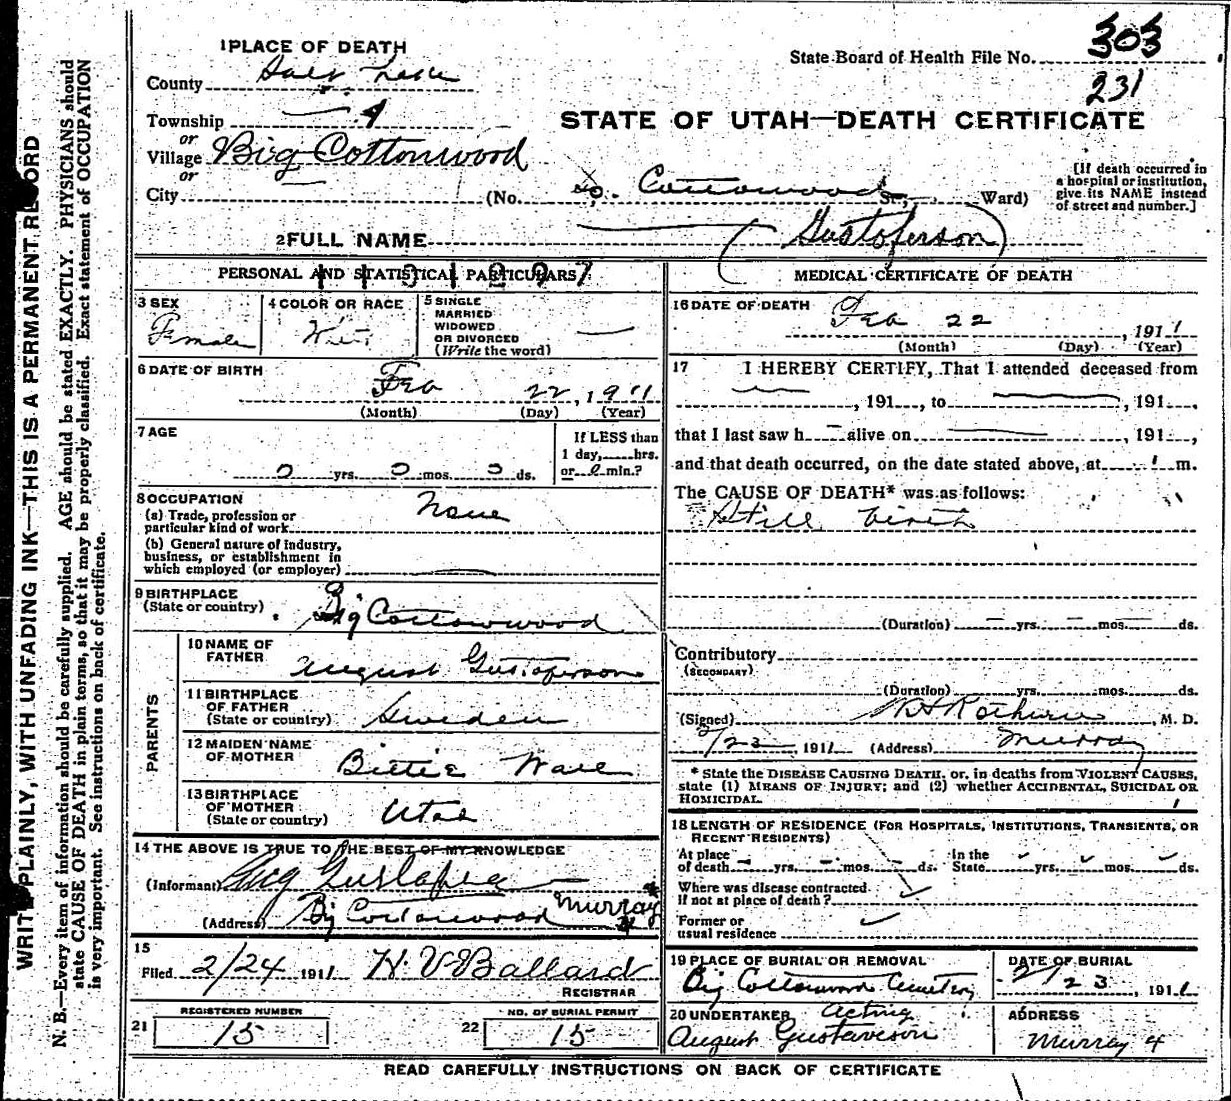 WRITE PLAINLY, WITH UNFADING INK—THIS IS A PERMANENT RECORD
N. B.—Every item of information should be carefully supplied. AGE should be stated EXACTLY. PHYSICIANS should
state CAUSE OF DEATH in plain terms, so that it may be properly classified. Exact statement of OCCUPATION
is very important. See instructions on back of certificate.
303
State Board of Health File No.
231
1 PLACE OF DEATH
County Salt Lake
Township 4
STATE OF UTAH—DEATH CERTIFICATE
or
Village Big Cottonwood
or
City — (No. So. Cottonwood St., Ward)
[If death occurred in
a hospital or institution,
give its NAME instead
of street and number.]
2 FULL NAME (Gustoferson)
PERSONAL AND STATISTICAL PARTICULARS
3 SEX
Female
4 COLOR OR RACE
White
5 SINGLE
MARRIED
WIDOWED
OR DIVORCED
(Write the word)
—
6 DATE OF BIRTH
Feb 22, 1911
(Month) (Day) (Year)
7 AGE
0 yrs. 0 mos. 0 ds.
If LESS than
1 day, hrs.
or 0 min.?
8 OCCUPATION
(a) Trade, profession or
particular kind of work None
(b) General nature of industry,
business, or establishment in
which employed (or employer) —
9 BIRTHPLACE
(State or country) Big Cottonwood
PARENTS
10 NAME OF
FATHER August Gustoferson
11 BIRTHPLACE
OF FATHER
(State or country) Sweden
12 MAIDEN NAME
OF MOTHER
13 BIRTHPLACE
OF MOTHER
(State or country) Utah
14 THE ABOVE IS TRUE TO THE BEST OF MY KNOWLEDGE
(Informant) Aug
(Address) Big Cottonwood Murray
4
15
Filed 2/24 1911 H. V Ballard
REGISTRAR
21 REGISTERED NUMBER
15
22 NO. OF BURIAL PERMIT
15
MEDICAL CERTIFICATE OF DEATH
16 DATE OF DEATH
Feb 22, 1911
(Month) (Day) (Year)
17 I HEREBY CERTIFY, That I attended deceased from
—, 191 , to —, 191 ,
that I last saw h — alive on —, 191 ,
and that death occurred, on the date stated above, at m.
The CAUSE OF DEATH* was as follows:
Still birth
(Duration) — yrs. — mos. — ds.
Contributory
(SECONDARY)
(Duration) yrs. mos. ds.
(Signed) M. D.
2/23, 1911 (Address) Murray
* State the DISEASE CAUSING DEATH, or, in deaths from VIOLENT CAUSES,
state (1) MEANS OF INJURY; and (2) whether ACCIDENTAL, SUICIDAL OR
HOMICIDAL.
18 LENGTH OF RESIDENCE (FOR HOSPITALS, INSTITUTIONS, TRANSIENTS, OR
RECENT RESIDENTS)
At place
of death — yrs. — mos. — ds.
In the
State yrs. mos. ds.
Where was disease contracted
if not at place of death?
Former or
usual residence
19 PLACE OF BURIAL OR REMOVAL
Big Cottonwood Cemetery
DATE OF BURIAL
2/23, 1911
20 UNDERTAKER Acting
August Gustaveson
ADDRESS
Murray 4
READ CAREFULLY INSTRUCTIONS ON BACK OF CERTIFICATE